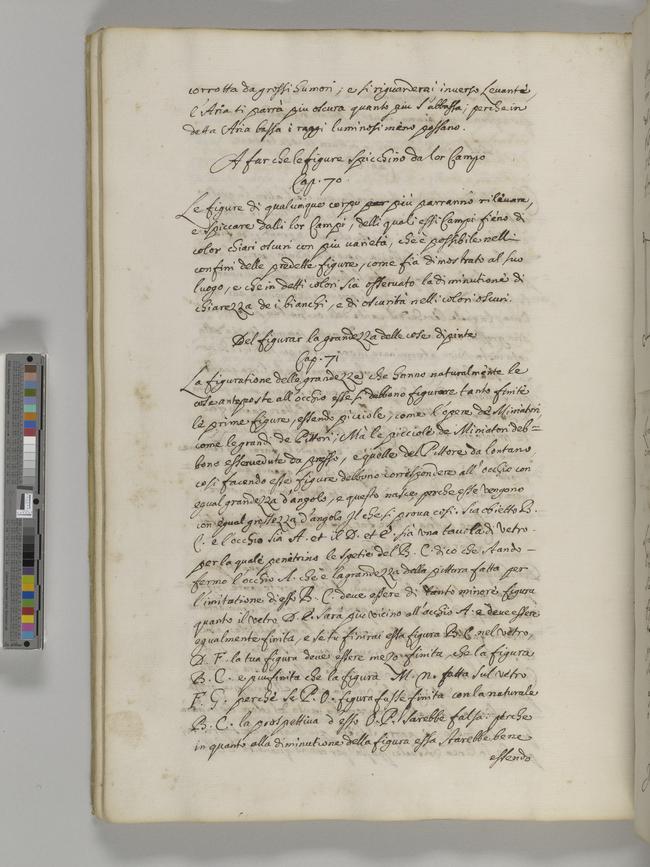 corrotta da grossi humori; e si riguarderai inverso Levante,
l'Aria ti parrà piu oscura quanto piu s'abbassa; perche in
detta Aria bassa i raggi luminosi meno possano.
A far che le figure spicchino da lor Campo
Cap. 70.
Le figure di qualunque corpo piu parranno rilevare,
e spiccare dalli lor Campi, delli quali essi Campi fieno di
color chiari oscuri con piu varietà, che è possibile nelli
confini delle predette figure, come fia dimostrato al suo
luogo, e che in detti colori sia osservato la diminutione di
chiarezza de i bianchi, e di oscurità nelli colori oscuri.
Del figurar la grandezza delle cose dipinte
Cap. 71
La figuratione delle grandezze che hanno naturalmente le
cose anteposte all'occhio esse si debbono figurare tanto finite
le prime figure, essendo picciole, come l'opere de Miniatori
come le grandi de Pittori; Ma le picciole de Miniatori deb=
bono esser vedute da presso, e quelle del Pittore da lontano,
cosi facendo esse figure debbono corrispondere all'occhio con
egual grandezza d'angolo, e questo nasce, perche esse vengono
con egual grossezza d'angolo Il che si prova cosi. Sia obietto B.
C. e l'occhio sia A. et il D. et E. sia una tavola di vetro
per la quale penetrino le spetie del B. C. dico che stando
fermo l'occhio A. che è la grandezza della pittura fatta per
l'imitatione di esso B. C. deve essere di tanto minore figura
quanto il vetro D. E. sarà piu vicino all'occhio A. e deve essere
egualmente finita, e se tu finirai essa figura B. C. nel vetro,
D. F. la tua figura deve essere meno finita, che la figura
B. C. e piu finita che la figura M. N. fatta sul vetro
F. G. perche se P. O. figura fusse finita con la naturale
B. C. la prospettiva d'esso O. P. sarebbe falsa: perche
in quanto alla diminutione della figura essa starebbe bene
essendo